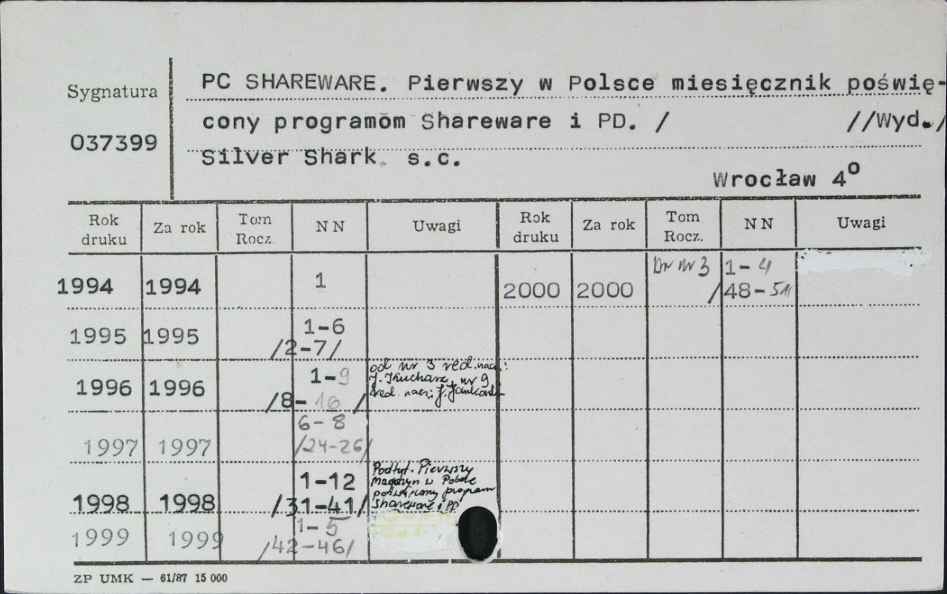 Sygnatura
037399
PC SHAREWARE. Pierwszy w Polsce miesięcznik poświę-
cony programom Shareware i PD. / //Wyd./
Silver Shark s.c.
Wrocław 4°
Rok druku Za rok Tom Rocz. NN Uwagi Rok druku Za rok Tom Rocz. NN Uwagi
1994 1994 1 2000 2000 Dr nr 3 1-4 /48-51
1995 1995 1-6 /2-7/
1996 1996 1-9 /8-16/ od nr 3 red. nacz.: nr 9 red. nacz.
1997 1997 6-8 /24-26/
1998 1998 1-12 /31-41/ Podtyt. Pierwszy
magazyn w Polsce
poświęcony program
Shareware i PD
1999 1999 1-5 /42-46/
ZP UMK — 61/87 15 000